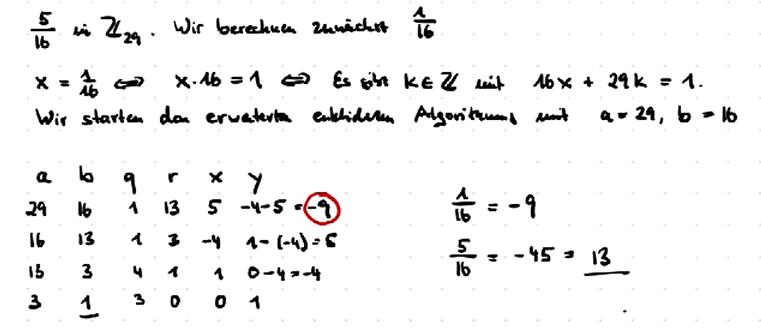 5/16 in ℤ₂₉. Wir berechnen zunächst 1/16
x = 1/16 ⇔ x·16 = 1 ⇔ Es gibt k ∈ ℤ mit 16x + 29k = 1.
Wir starten den erweiterten euklidischen Algorithmus mit a = 29, b = 16
a b q r x y
29 16 1 13 5 -4-5 = -9
16 13 1 3 -4 1-(-4) = 5
13 3 4 1 1 0-4 = -4
3 1 3 0 0 1
1/16 = -9
5/16 = -45 = 13